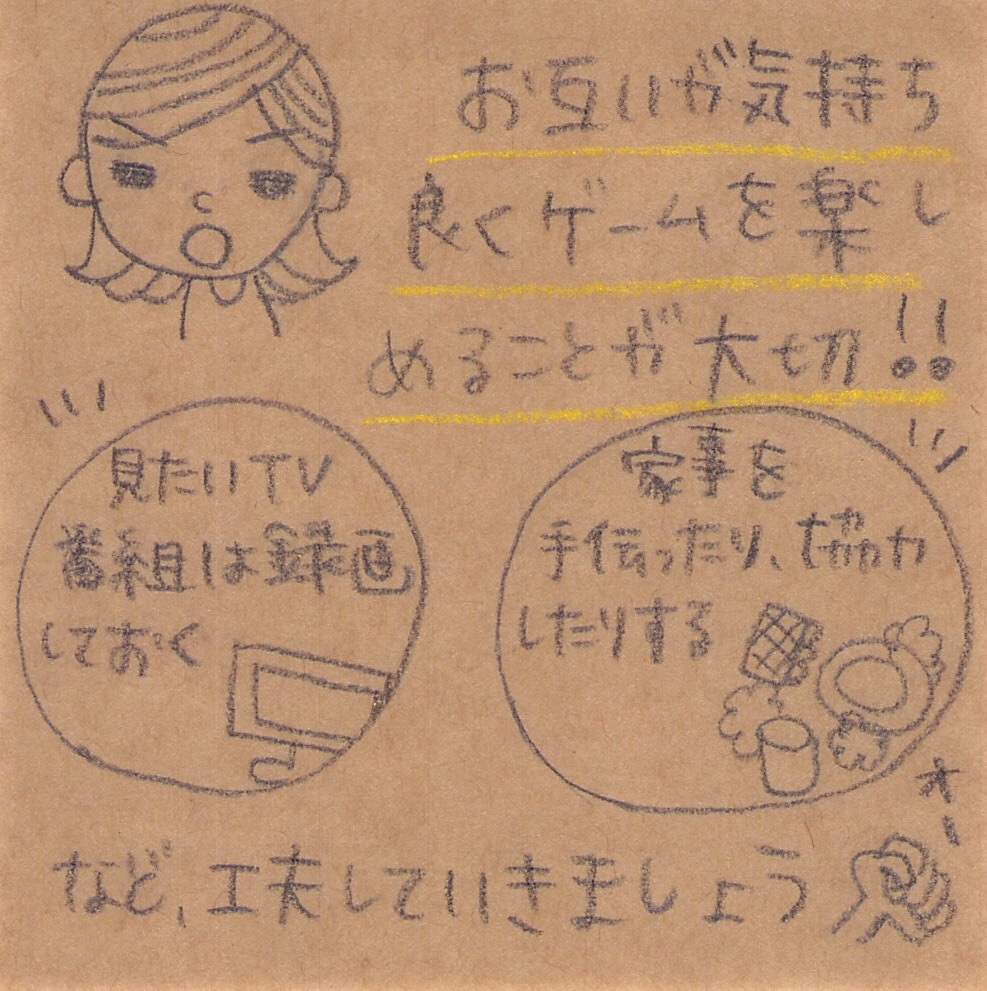 お互いが気持ち
良くゲームを楽し
めることが大切!!
見たいTV
番組は録画
しておく
家事を
手伝ったり、協力
したりする
など、工夫していきましょう
オー